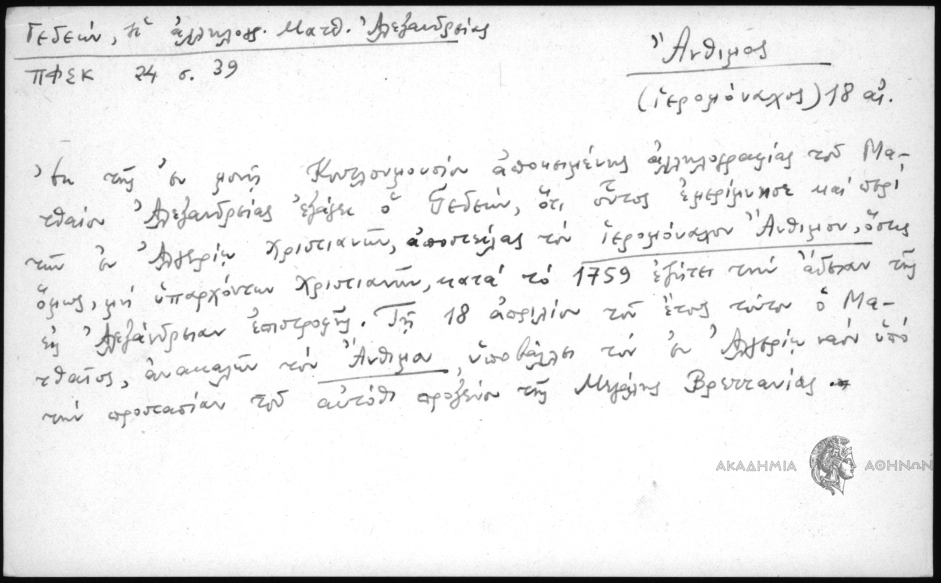 Γεδεών, Ἡ ἀλληλογρ. Ματθ. Ἀλεξανδρείας
ΠΦΣΚ 24 σ. 39
Ἄνθιμος
(ἱερομόναχος) 18 αἰ.
Ἐκ τῆς ἐν μονῇ Κουτλουμουσίου ἀποκειμένης ἀλληλογραφίας τοῦ Μα-
τθαίου Ἀλεξανδρείας ἐξάγει ὁ Γεδεών, ὅτι οὗτος ἐμερίμνησε καί περί
τῶν ἐν Ἀλγερίῳ Χριστιανῶν, ἀποστείλας τόν ἱερομόναχον Ἄνθιμον, ὅστις
ὅμως, μή ὑπαρχόντων Χριστιανῶν, κατά τό 1759 ἐζήτει τήν ἄδειαν τῆς
εἰς Ἀλεξάνδρειαν ἐπιστροφῆς. Τῇ 18 ἀπριλίου τοῦ ἔτους τούτου ὁ Μα-
τθαῖος, ἀνακαλῶν τόν Ἄνθιμον, ὑποβάλλει τόν ἐν Ἀλγερίῳ ναόν ὑπό
τήν προστασίαν τοῦ αὐτόθι προξένου τῆς Μεγάλης Βρεττανίας.
ΑΚΑΔΗΜΙΑ ΑΘΗΝΩΝ